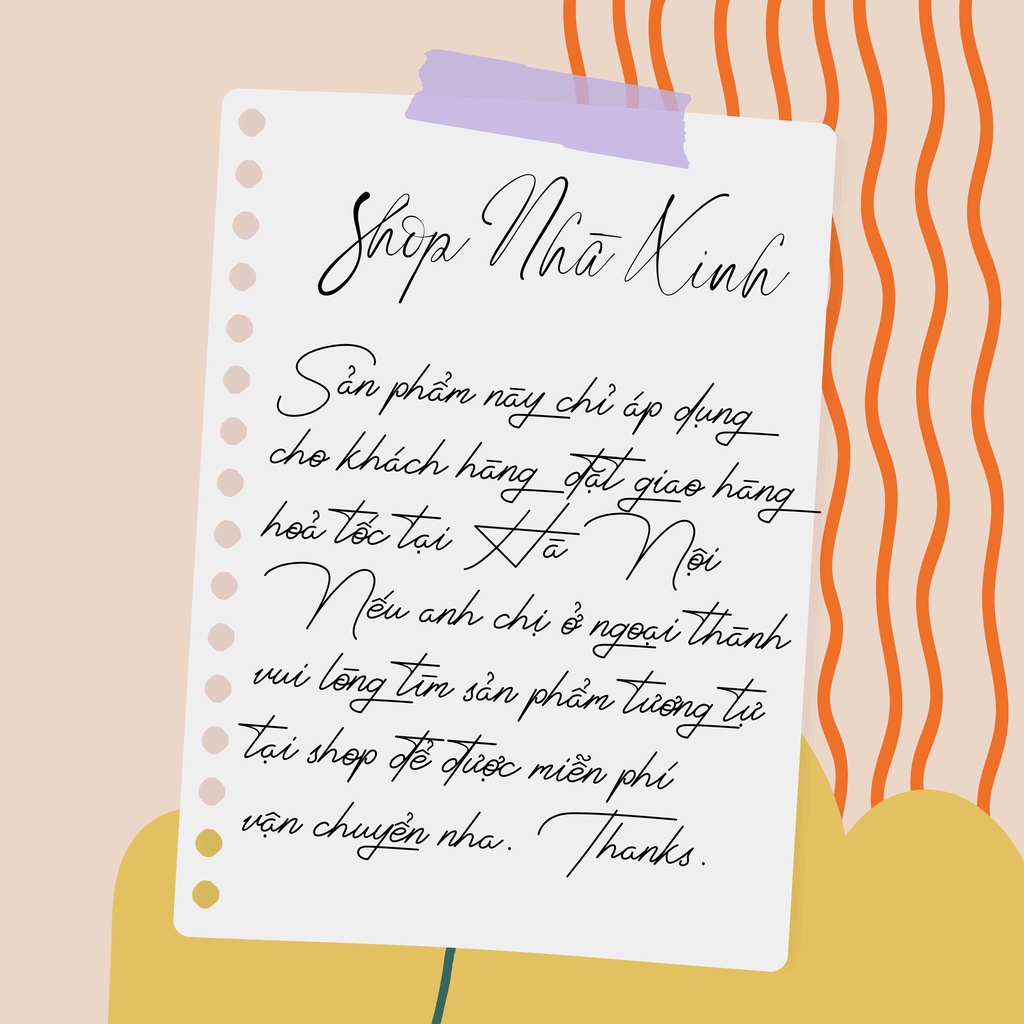 Shop Nhà Xinh
Sản phẩm này chỉ áp dụng
cho khách hàng đặt giao hàng
hoả tốc tại Hà Nội
Nếu anh chị ở ngoại thành
vui lòng tìm sản phẩm tương tự
tại shop để được miễn phí
vận chuyển nha. Thanks.